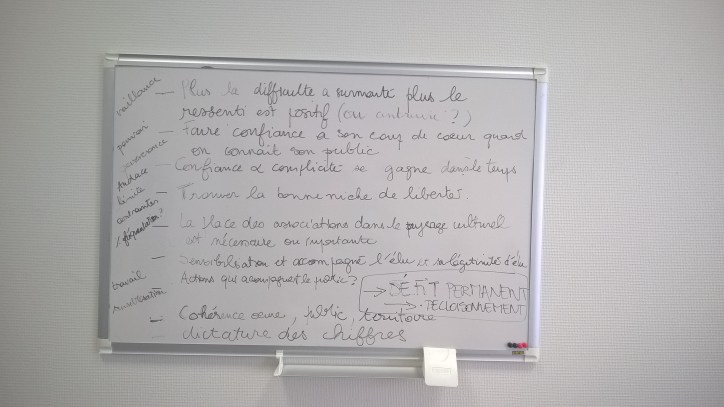 vaillance
— Plus la difficulté a surmonté plus le
ressenti est positif (ou contraire?)
pouvoir
— Faire confiance à son coup de coeur quand
on connait son public
— Confiance & complicité se gagne dans le temps
Audace
limite
— Trouver la bonne niche de liberté.
contraintes
— La place des associations dans le paysage culturel
est nécessaire ou importante
— Sensibilisation et accompagné l'élu et sa légitimité d'élu
Actions qui accompagnent le public?
→ DÉFIT PERMANENT
→ DECLOISONNEMENT
travail
— Cohérence oeuvre, public, territoire
— dictature des chiffres